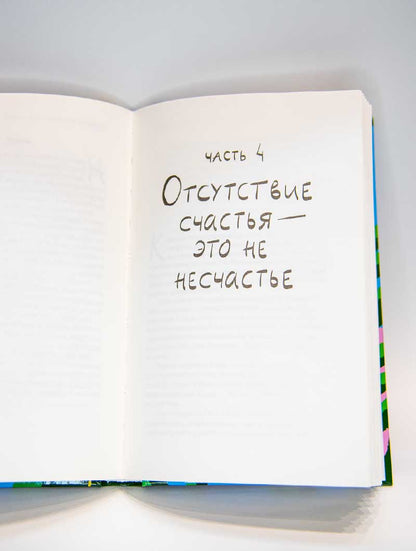 ЧАСТЬ 4
ОТСУТСТВИЕ
СЧАСТЬЯ —
ЭТО НЕ
НЕСЧАСТЬЕ